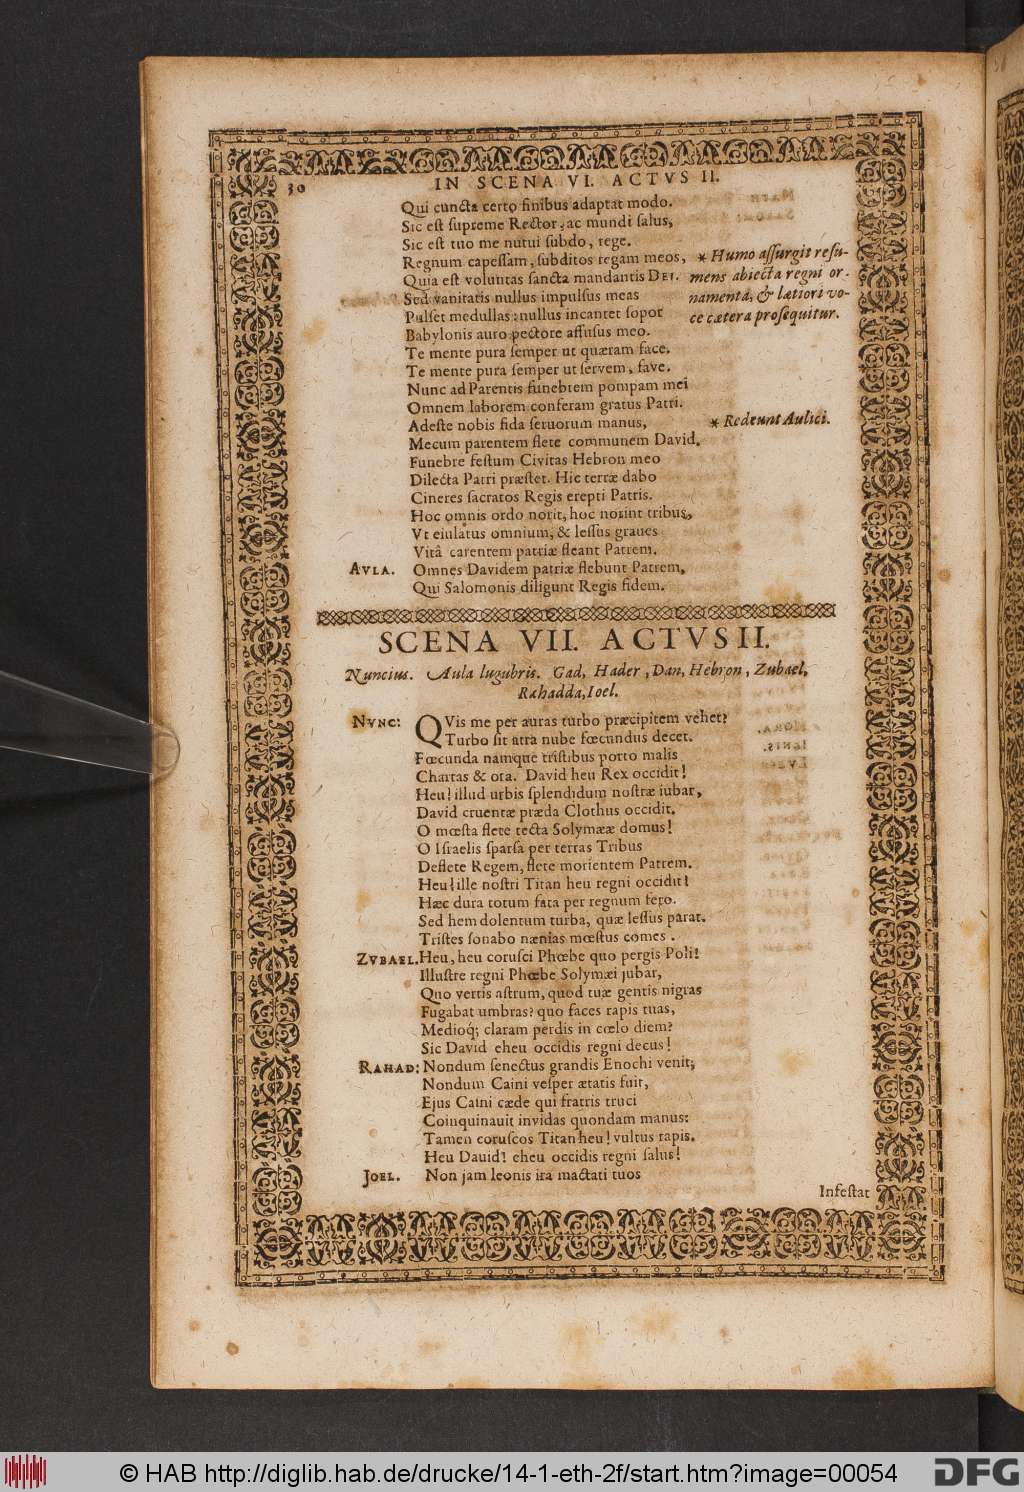 30
IN SCENA VI. ACTVS II.
Qui cuncta certo finibus adaptat modo.
Sic est supreme Rector, ac mundi salus,
Sic est tuo me nutui subdo, rege.
Regnum capessam, subditos regam meos,
Quia est voluntas sancta mandantis DEI.
Sed vanitatis nullus impulsus meas
Pulset medullas: nullus incantet sopor
Babylonis auro pectore affusus meo.
Te mente pura semper ut quæram face.
Te mente pura semper ut servem, fave.
Nunc ad Parentis funebrem pompam mei
Omnem laborem conferam gratus Patri.
Adeste nobis fida servorum manus,
Mecum parentem flete communem David.
Funebre festum Civitas Hebron meo
Dilecta Patri præstet. Hic terræ dabo
Cineres sacratos Regis erepti Patris.
Hoc omnis ordo norit, hoc norint tribus,
Vt eiulatus omnium, & lessus graues
Vitâ carentem patriæ fleant Patrem.
AVLA. Omnes Davidem patriæ flebunt Patrem,
Qui Salomonis diligunt Regis fidem.
* Humo assurgit resu-
mens abiecta regni or-
namenta, & lætiori vo-
ce cætera prosequitur.
* Redeunt Aulici.
SCENA VII. ACTVS II.
Nuncius. Aula lugubris. Gad, Hader, Dan, Hebron, Zubael,
Rahadda, Ioel.
NVNC: QVis me per auras turbo præcipitem vehet?
Turbo sit atra nube fœcundus decet.
Fœcunda namque tristibus porto malis
Chartas & ora. David heu Rex occidit!
Heu! illud urbis splendidum nostræ iubar,
David cruentæ præda Clothus occidit.
O mœsta flete tecta Solymææ domus!
O Israelis sparsa per terras Tribus
Deflete Regem, flete morientem Patrem.
Heu! ille nostri Titan heu regni occidit!
Hæc dura totum fata per regnum fero.
Sed hem dolentum turba, quæ lessus parat.
Tristes sonabo nænias mœstus comes.
ZVBAEL. Heu, heu corusci Phœbe quo pergis Poli!
Illustre regni Phœbe Solymæi jubar,
Quo vertis astrum, quod tuæ gentis nigras
Fugabat umbras? quo faces rapis tuas,
Medioq; claram perdis in cœlo diem?
Sic David eheu occidis regni decus!
RAHAD: Nondum senectus grandis Enochi venit,
Nondum Caini vesper ætatis fuit,
Ejus Caini cæde qui fratris truci
Coinquinauit invidas quondam manus:
Tamen coruscos Titan heu! vultus rapis.
Heu Dauid! eheu occidis regni salus!
JOEL. Non jam leonis ira mactati tuos
Infestat
© HAB http://diglib.hab.de/drucke/14-1-eth-2f/start.htm?image=00054
DFG